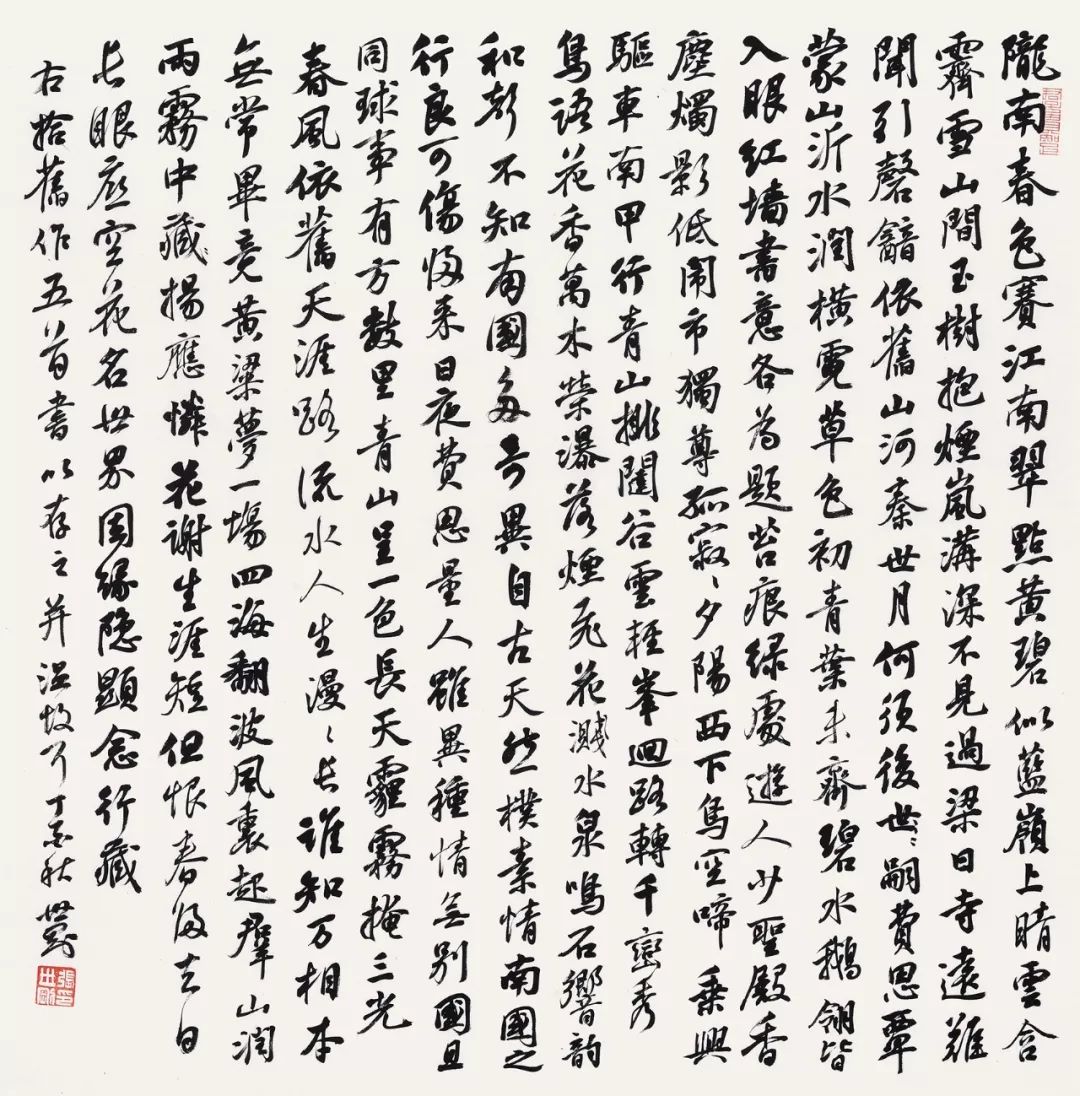 隴南春色賽江南翠點黃碧似藍嶺上晴雲含
霽雪山間玉樹抱煙嵐溝深不見過梁日寺遠難
聞引磬韽依舊山河秦世月何須後世〻嗣費思覃
蒙山沂水潤橫霓草色初青葉未齊碧水鵝翎皆
入眼紅墻書意各為題苔痕綠處遊人少聖殿香
塵燭影低閙市獨尊孤寂〻夕陽西下鳥空啼乘興
驅車南甲行青山排闥谷雲輕峯迴路轉千巒秀
鳥語花香萬木榮瀑落煙飛花濺水泉鳴石響音韵
和彭不知南國多奇異自古天然樸素情南國之
行良可傷歸來日夜費思量人雖異種情無別國且
同球事有方數里青山呈一色長天霾霧掩三光
春風依舊天涯路流水人生漫〻長誰知万相本
無常畢竟黃粱夢一場四海翻波風裏起羣山潤
雨霧中藏揚應憐花謝生涯短但恨春歸去日
長眼底空花名世界因緣隱顯念行藏
右拾舊作五首書以存之并温故了丁酉秋世剛
張世剛印